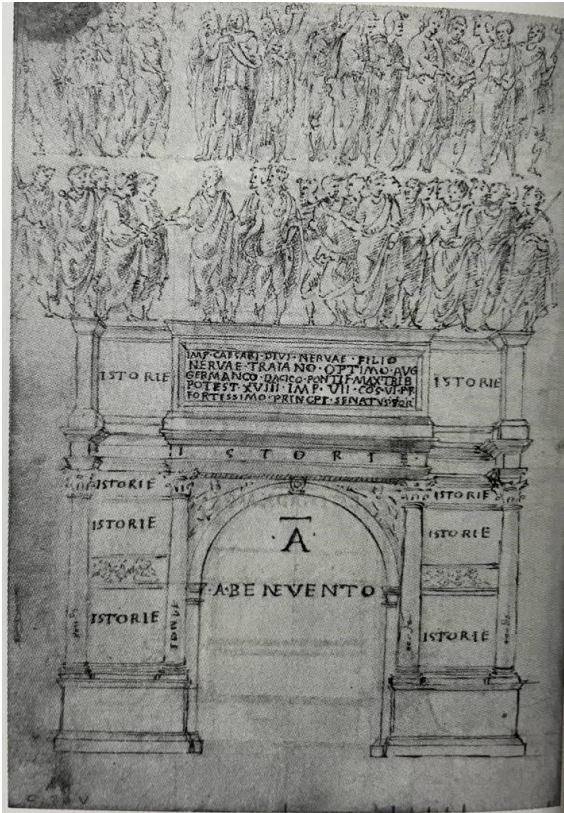 IMP·CAESARI·DIVI·NERVAE·FILIO
NERVAE·TRAIANO·OPTIMO·AVG
GERMANCO·DACICO·PONTIF·MAX·TRIB
POTEST·XVIII·IMP·VII·COS·VI·PP
FORTESSIMO·PRINCPI·SENATVS·
ISTORIE
ISTORIE
ISTORIE
ISTORIE
ISTORIE
ISTORIE
ISTORIE
ISTORIE
ISTORIE
A
·A·BENEVENTO